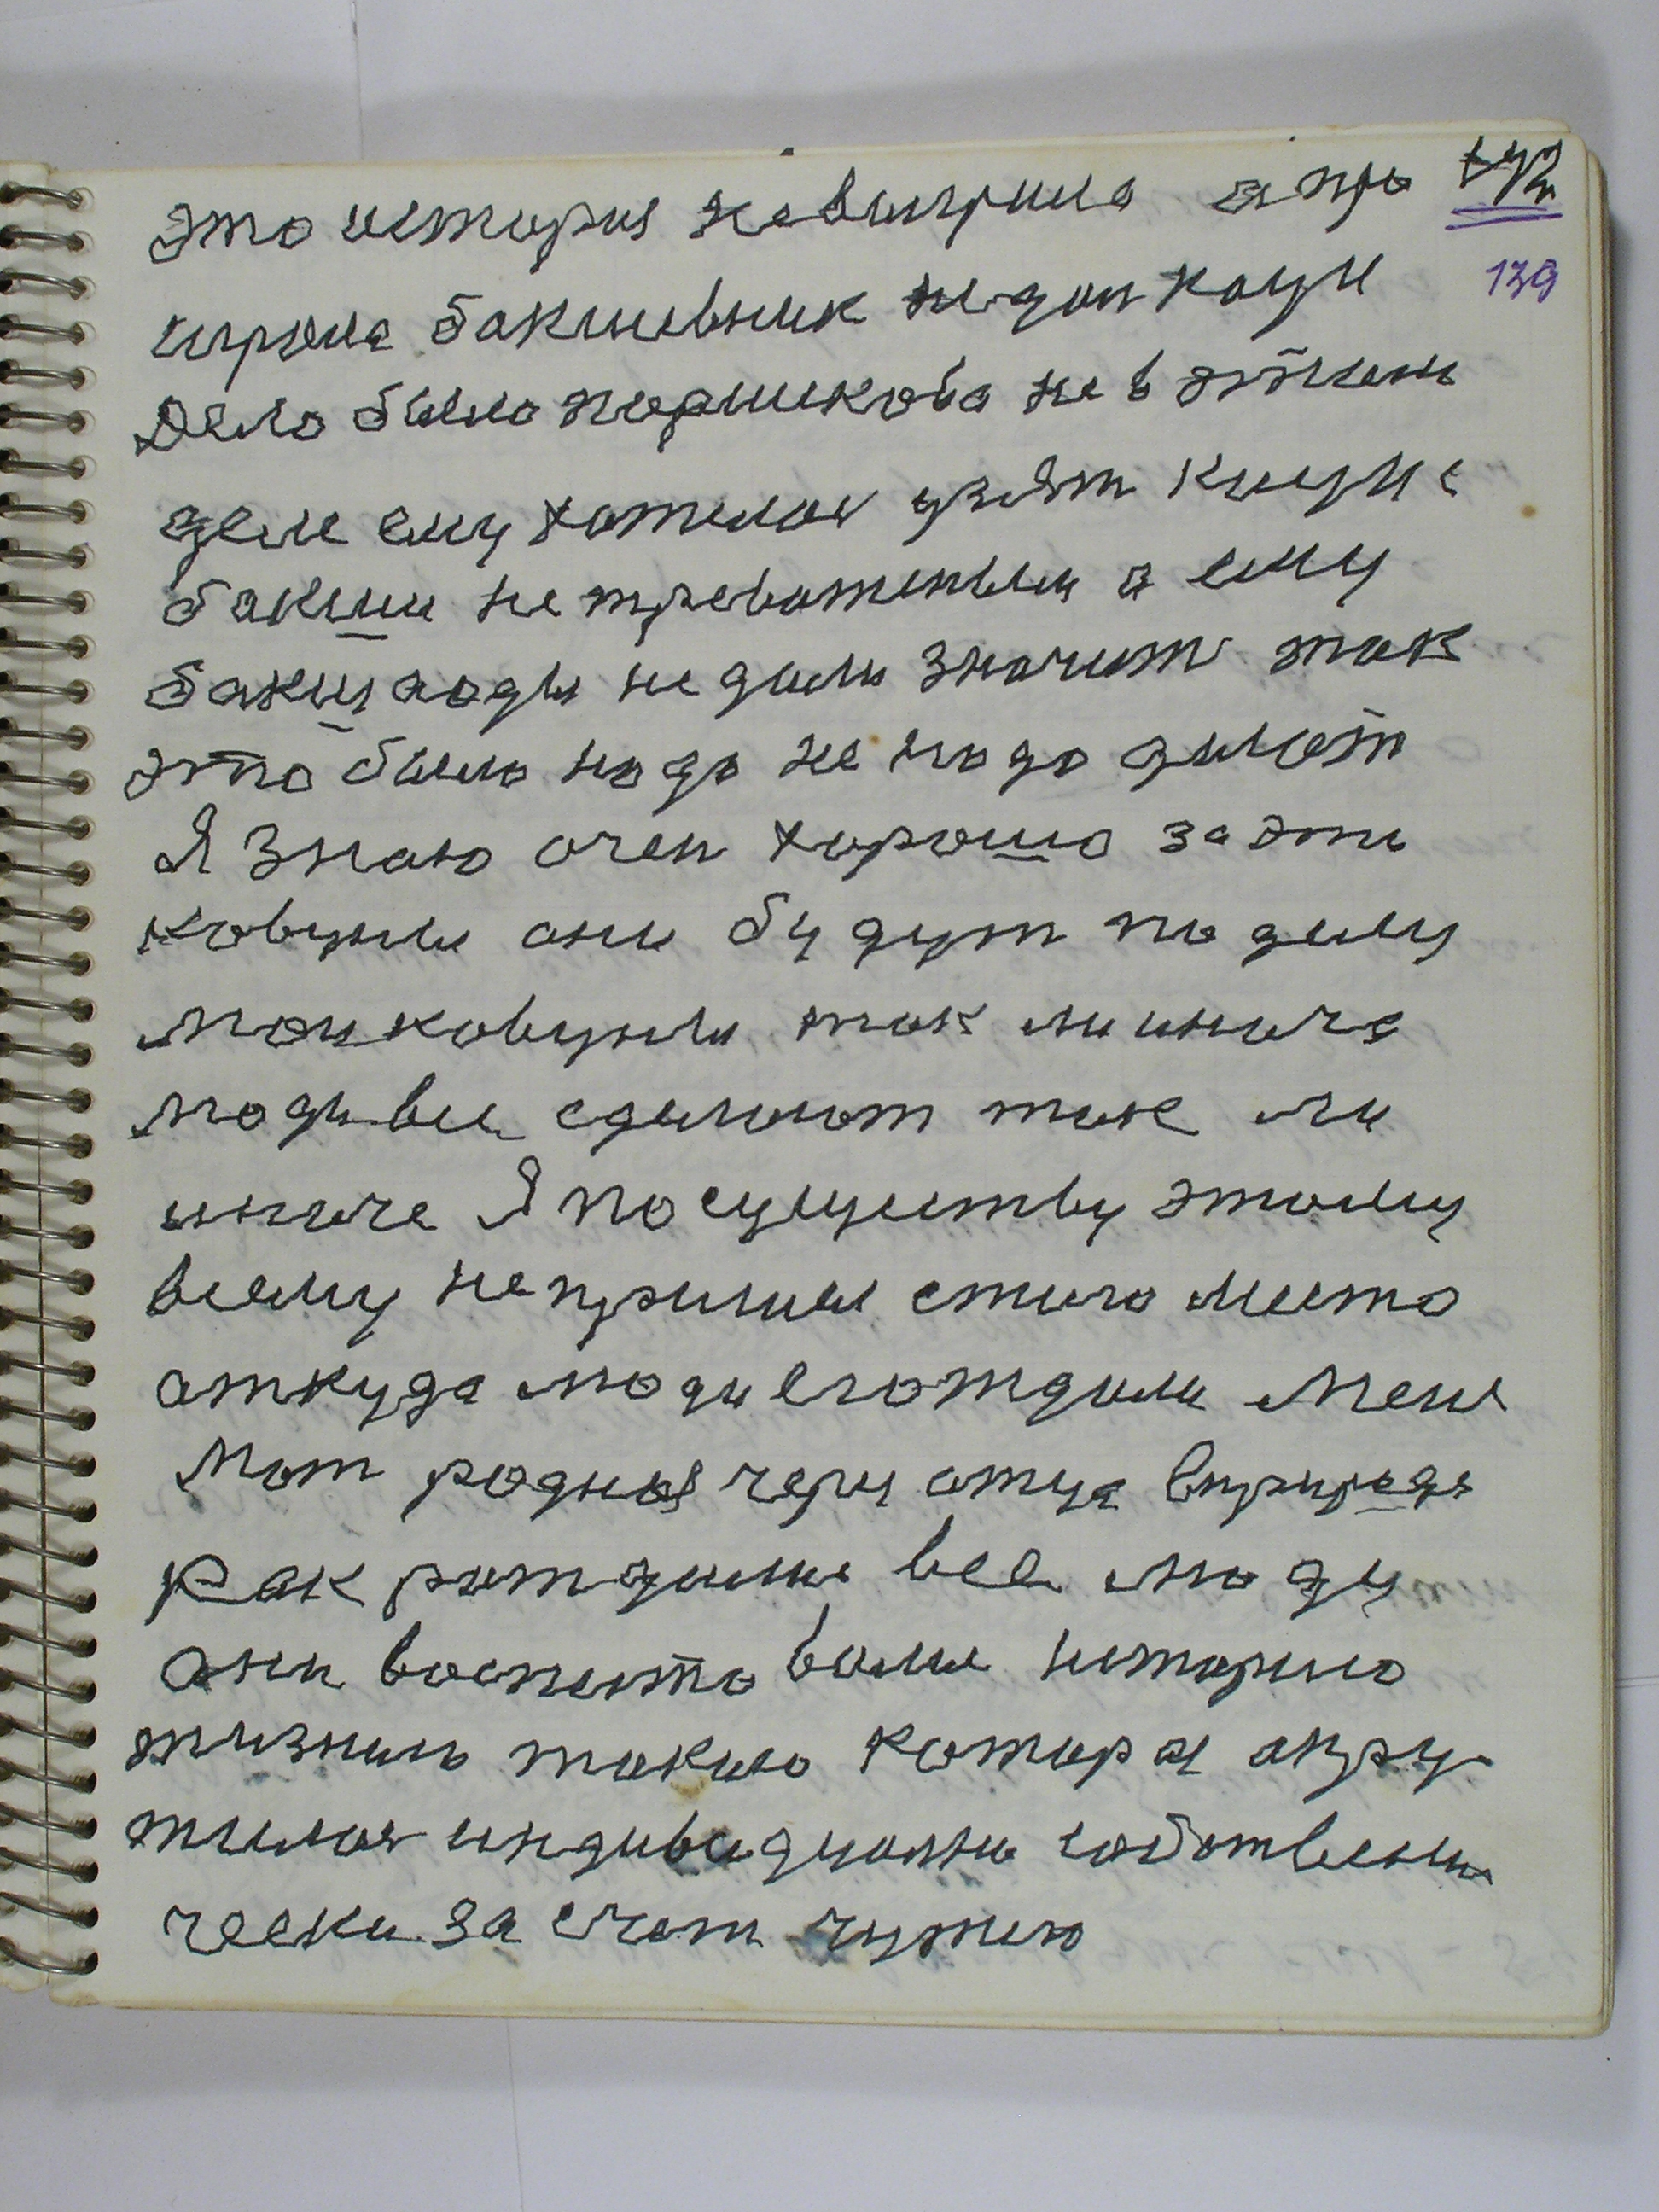 это история невыиграла а про 142
играла бакшевник недал каун 139
Дело было поршикова не в этим
деле ему хотелос узят кауна
бакши не тревоженыи а ему
бакши люди не дали значит так
это было надо не надо делат
Я знаю очен хорошо за эти
кавуны они будут по делу
мои кавуны так ли иначе
люди все сделают так ли
иначе Я по существу этому
всему не пришел стило место
откуда люди егождали меня
Мат родная через отца вприроде
как рождали все люди
они воспитовали историю
жизнию такою которая окру
жилас индивидуално собствени
чески за счет чужого